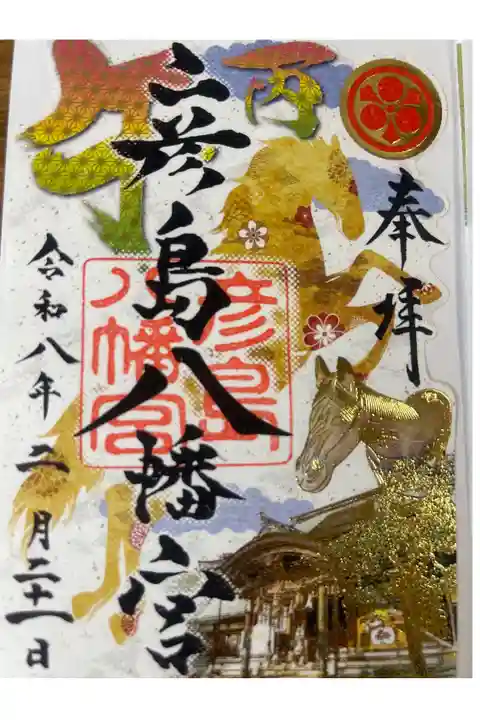 奉拝
丙午
彦島八幡宮
彦島
八幡宮
令和八年二月二十一日